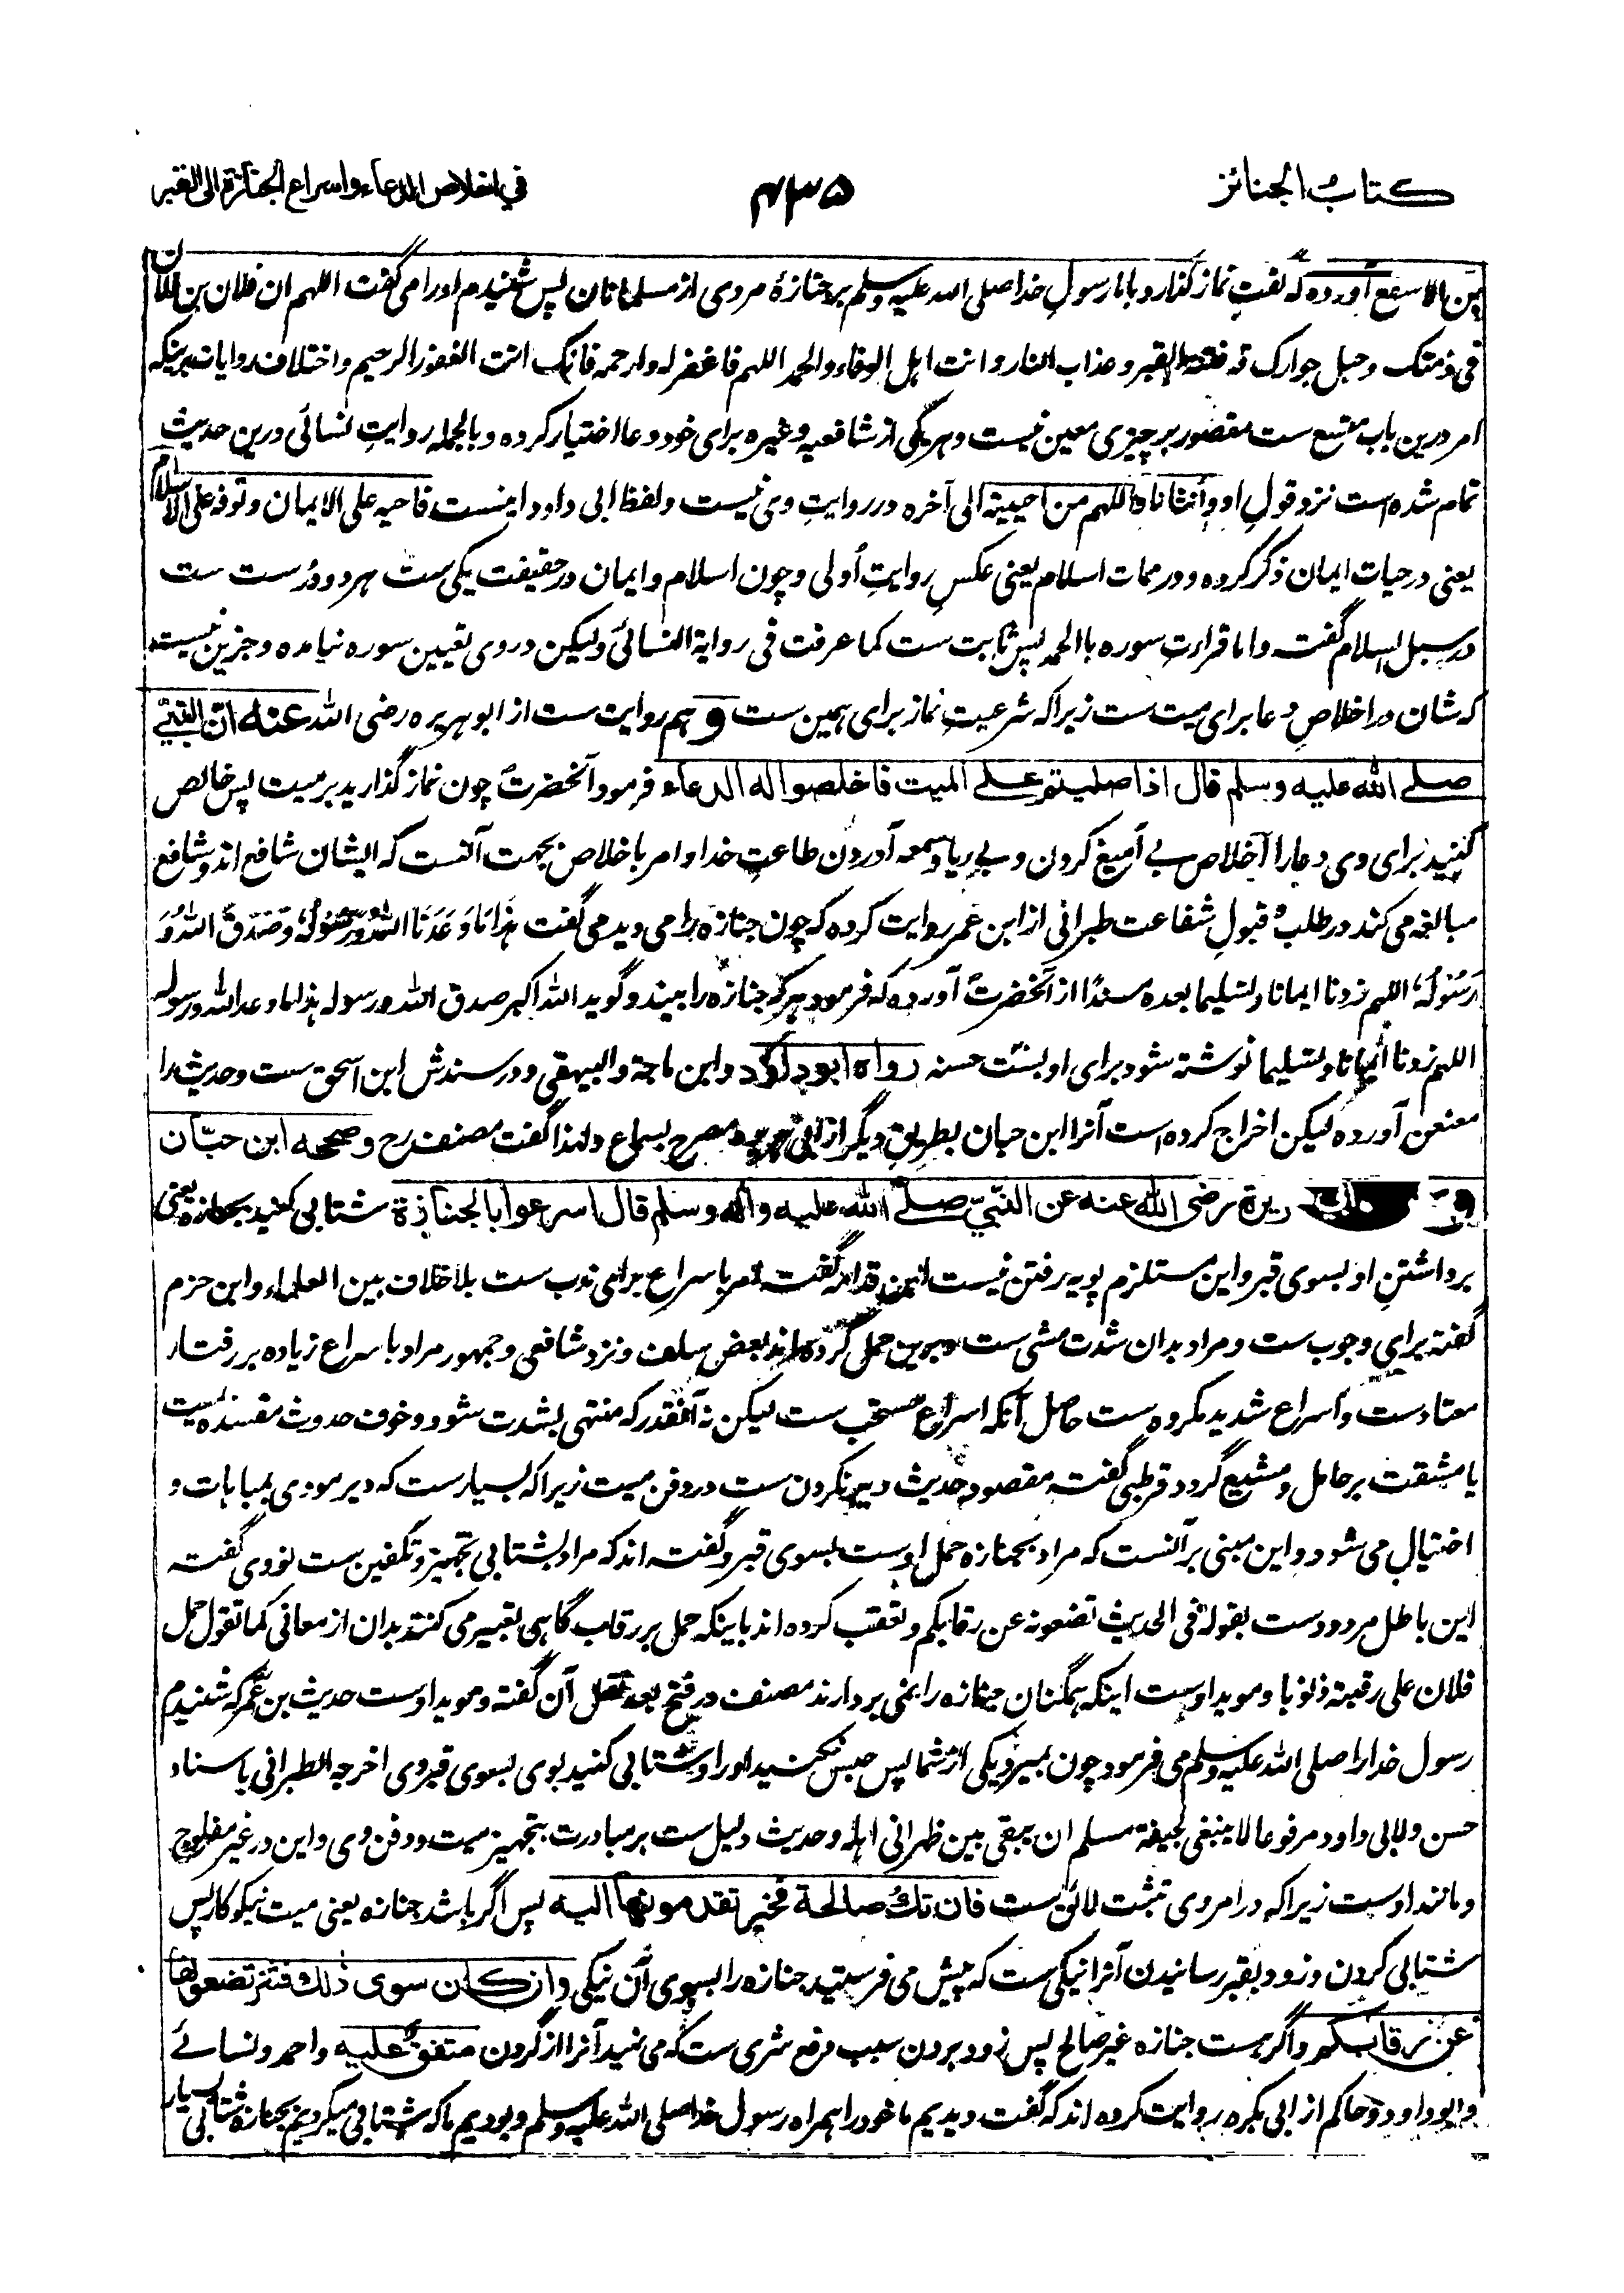 كتاب الجنائز
۴۳۵
في اخلاص الدعاء واسراع الجنازة الى القبر
بن الاسقع آورده که گفت نماز گذارد با ما رسول خدا صلی الله علیه وسلم بر جنازهٔ مردی از مسلمانان پس شنیدم او را می گفت اللهم ان فلان بن فلان
فی ذمتک وحبل جوارک قه فتنة القبر وعذاب النار وانت اهل الوفاء والحمد اللهم فاغفر له وارحمه فانک انت الغفور الرحیم واختلاف روایات برینکه
امر درین باب متسع ست مقصور بر چیزی معین نیست وهر یکی از شافعیه وغیره برای خود دعا اختیار کرده وبالجمله روایتِ نسائی درین حدیث
تمام شده است نزد قولِ او وأنثانا واللهم من احییته الی آخره در روایتِ وی نیست ولفظ ابی داود اینست فاحیه علی الایمان وتوفه علی الاسلام
یعنی در حیات ایمان ذکر کرده ودر ممات اسلام یعنی عکسِ روایتِ اُولی وچون اسلام وایمان در حقیقت یکی ست هر دو درست ست
در سبل السلام گفته واما قراءتِ سوره با الحمد پس ثابت ست کما عرفت فی روایة النسائی ولیکن در وی تعیین سوره نیامده وجز این نیست
که شان در اخلاصِ دعا برای میت ست زیرا که شرعیتِ نماز برای همین ست و هم روایت ست از ابو هریره رضی الله عنه ان النبي
صلے الله علیه وسلم قال اذا صلیتم علے المیت فاخلصوا له الدعاء فرمود آنحضرت چون نماز گذارید بر میت پس خالص
کنید برای وی دعا را اخلاص بے آمیغ کردن وبے ریا وسمعه آوردن طاعتِ خدا وامر باخلاص بجهت آنست که ایشان شافع اند وشافع
مبالغه می کند در طلب قبولِ شفاعت طبرانی از ابن عمر روایت کرده که چون جنازه را می دید می گفت هٰذَا مَا وَعَدَنَا اللهُ وَرَسُوْلُهٗ وَصَدَقَ اللهُ وَ
رَسُوْلُهٗ اللهم زدنا ایمانا وتسلیما بعده مسندًا از آنحضرت آورده که فرمود هر که جنازه را بیند وگوید الله اکبر صدق الله ورسوله هذا ما وعد الله ورسوله
اللهم زدنا ایمانا وتسلیما نوشته شود برای او بست حسنه رواه ابو داؤد وابن ماجة والبیهقی ودر سندش ابن اسحق ست وحدیث را
معنعن آورده لیکن اخراج کرده است آنرا ابن حبان بطریقِ دیگر از مصرح بسماع ولهذا گفت مصنف رح وصححه ابن حبّان
و ريرة رضی الله عنه عن النبيّ صلے الله علیه وآله وسلم قال اسرعوا بالجنازة شتابی کنید بجنازه یعنی
برداشتنِ او بسوی قبر واین مستلزم پویه رفتن نیست ابن قدامه گفت امر باسراع برای ندب ست بلا خلاف بین العلماء وابن حزم
گفته برایِ وجوب ست ومراد بدان شدت مشی ست وبرین حمل کرده اند بعض سلف ونزد شافعی وجمهور مراد باسراع زیاده بر رفتار
معتاد ست واسراع شدید مکروه ست حاصل آنکه اسراع مستحب ست لیکن نه آنقدر که منتهی بشدت شود وخوف حدوث مفسده میت
یا مشقت بر حامل ومشیع گردد قرطبی گفت مقصود حدیث دیر نکردن ست در دفن میت زیرا که بسیار ست که دیر مودی بمباهات و
اختیال می شود واین مبنی بر آنست که مراد بجنازه حمل اوست بسوی قبر وگفته اند که مراد بشتابی تجهیز وتکفین ست نووی گفته
این باطل مردود ست بقوله فی الحدیث تضعونه عن رقابکم وتعقب کرده اند باینکه حمل بر رقاب گاهی تعبیر می کنند بدان از معانی کما تقول حمل
فلان علی رقبته ذنوبا ومویداوست اینکه همگنان جنازه را بنمی بردارند مصنف در فتح بعد نقل آن گفته ومویداوست حدیث بن عمر که شنیدم
رسول خدا را صلی الله علیه وسلم می فرمود چون بمیرد یکی از شما پس حبس نکنید او را وشتابی کنید بوی بسوی قبر وی اخرجه الطبرانی باسناد
حسن ولابی داود مرفوعا لا ینبغی لجیفة مسلم ان تبقی بین ظهرانی اهله وحدیث دلیل ست بر مبادرت بتجهیز میت ودفن وی واین در غیر مفلوج
ومانند اوست زیرا که در امر وی تثبت لائق ست فان تك صالحة فخیر تقدمونها الیه پس اگر باشد جنازه یعنی میت نیکوکار پس
شتابی کردن وزود بقبر رسانیدن آنرا نیکی ست که پیش می فرستید جنازه را بسوی آن نیکی وان كان سوی ذلك فشر تضعونها
عن رقابکم واگر هست جنازه غیر صالح پس زود بردن سبب وضع شری ست که می نهید آنرا از گردن متفق علیه واحمد ونسائے
وابو داود وحاکم از ابی بکره روایت کرده اند که گفت دیدیم ما خود را همراه رسول خدا صلی الله علیه وسلم وبودیم ما که شتابی میکردیم بجنازه شتابی بسیار